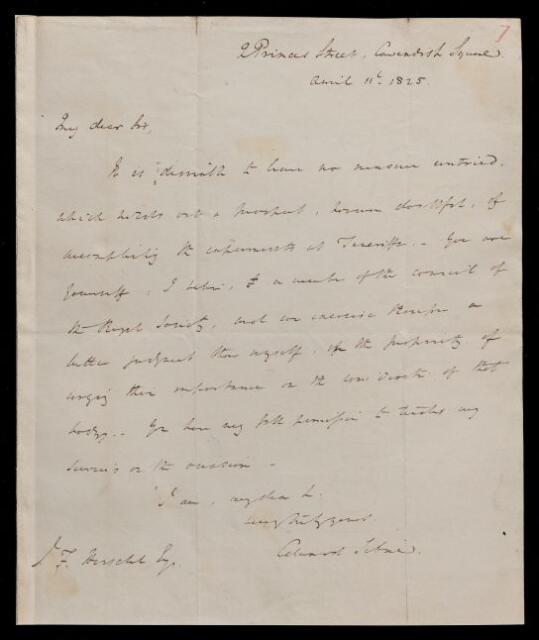 7
2 Princes Street, Cavendish Square
April 11th 1825.
My dear Sir,
It is desirable to leave no measure untried
which holds out a prospect, however doubtful, of
accomplishing the experiments at Teneriffe. - You are
yourself, I believe, a member of the council of
the Royal Society, and can exercise therefore a
better judgment than myself, on the propriety of
urging their importance on the consideration of that
body. - You have my full permission to tender my
services on the occasion -
I am, my dear Sir
very truly yours
Edward Sabine.
J. F. Herschel Esq.